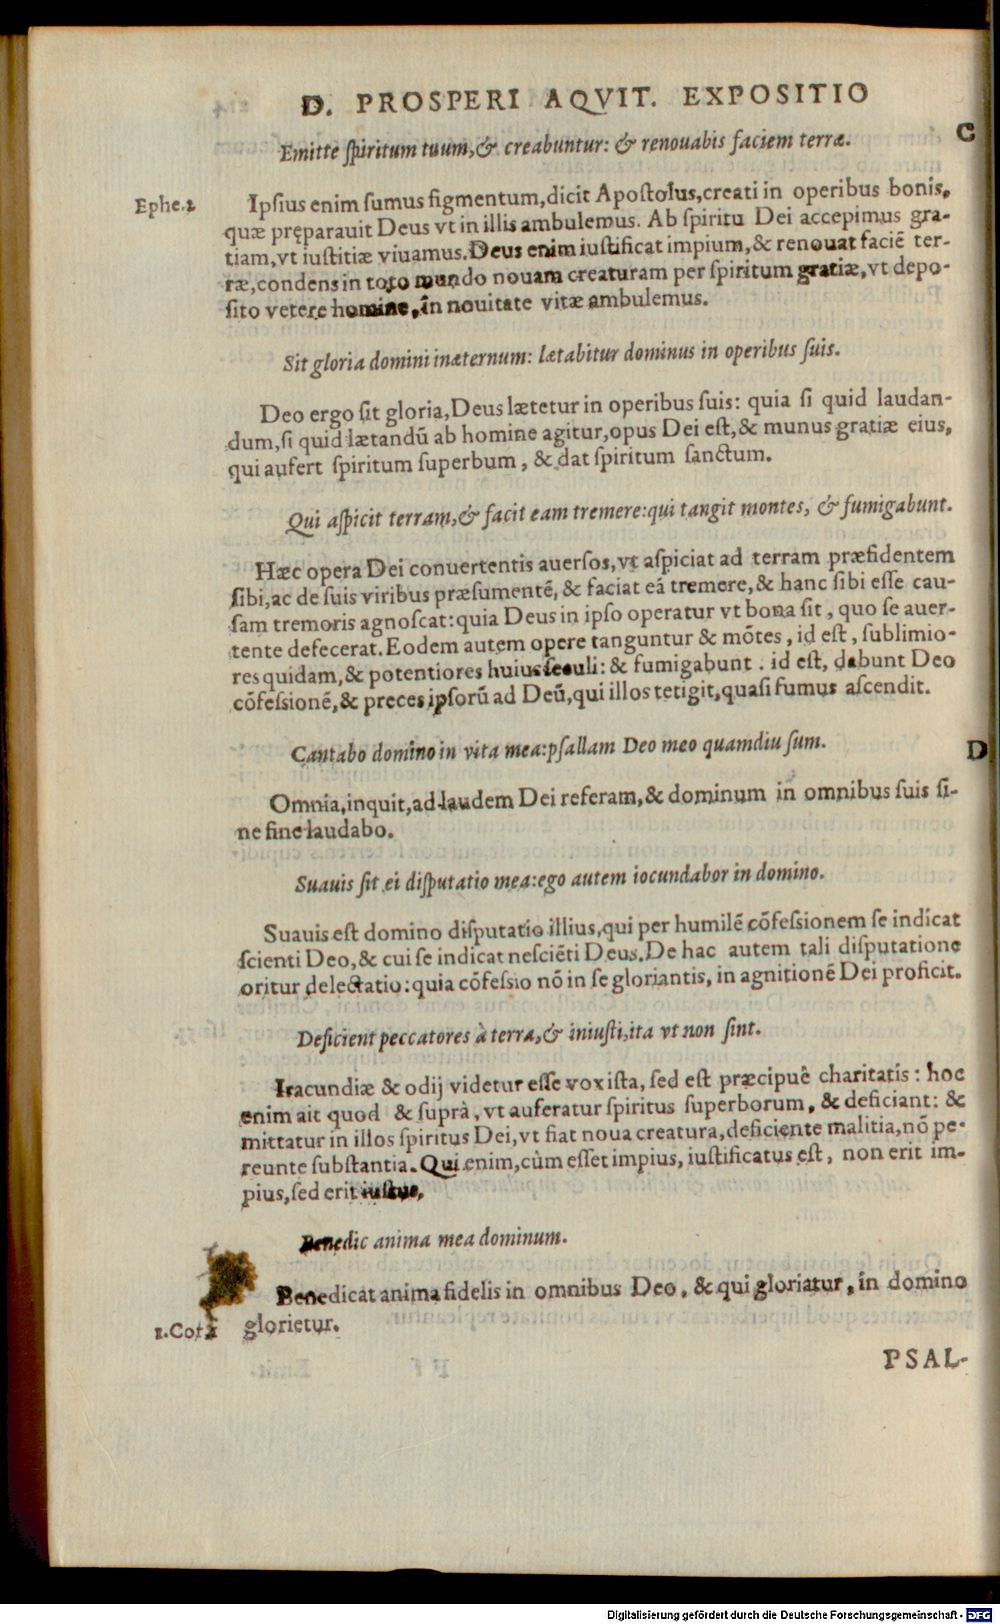 D. PROSPERI AQVIT. EXPOSITIO
C
Emitte spiritum tuum,& creabuntur: & renouabis faciem terræ.
Ephe.2
Ipsius enim sumus figmentum,dicit Apostolus,creati in operibus bonis,
quæ pręparauit Deus vt in illis ambulemus. Ab spiritu Dei accepimus gra-
tiam,vt iustitiæ viuamus.Deus enim iustificat impium,& renouat faciẽ ter-
ræ,condens in toto mundo nouam creaturam per spiritum gratiæ,vt depo-
sito vetere homine,in nouitate vitæ ambulemus.
Sit gloria domini inæternum: lætabitur dominus in operibus suis.
Deo ergo sit gloria,Deus lætetur in operibus suis: quia si quid laudan-
dum,si quid lætandũ ab homine agitur,opus Dei est,& munus gratiæ eius,
qui aufert spiritum superbum, & dat spiritum sanctum.
Qui aspicit terram,& facit eam tremere:qui tangit montes, & fumigabunt.
Hæc opera Dei conuertentis auersos,vt aspiciat ad terram præfidentem
sibi,ac de suis viribus præsumentẽ, & faciat eã tremere,& hanc sibi esse cau-
sam tremoris agnoscat:quia Deus in ipso operatur vt bona sit, quo se auer-
tente defecerat.Eodem autem opere tanguntur & mõtes, id est, sublimio-
res quidam,& potentiores huius seculi: & fumigabunt. id est, dabunt Deo
cõfessionẽ,& preces ipsorũ ad Deũ,qui illos tetigit,quasi fumus ascendit.
Cantabo domino in vita mea:psallam Deo meo quamdiu sum.
D
Omnia,inquit,ad laudem Dei referam,& dominum in omnibus suis si-
ne fine laudabo.
Suauis sit ei disputatio mea:ego autem iocundabor in domino.
Suauis est domino disputatio illius,qui per humilẽ cõfessionem se indicat
scienti Deo,& cui se indicat nesciẽti Deus.De hac autem tali disputatione
oritur delectatio:quia cõfessio nõ in se gloriantis, in agnitionẽ Dei proficit.
Deficient peccatores à terra,& iniusti,ita vt non sint.
Iracundiæ & odij videtur esse vox ista, sed est præcipuè charitatis: hoc
enim ait quod & suprà, vt auferatur spiritus superborum, & deficiant: &
mittatur in illos spiritus Dei,vt fiat noua creatura,deficiente malitia,nõ pe-
reunte substantia.Qui enim,cùm esset impius, iustificatus est, non erit im-
pius,sed erit iustus.
Benedic anima mea dominum.
Benedicat anima fidelis in omnibus Deo, & qui gloriatur, in domino
1.Cor.1
glorietur.
PSAL-
Digitalisierung gefördert durch die Deutsche Forschungsgemeinschaft - DFG